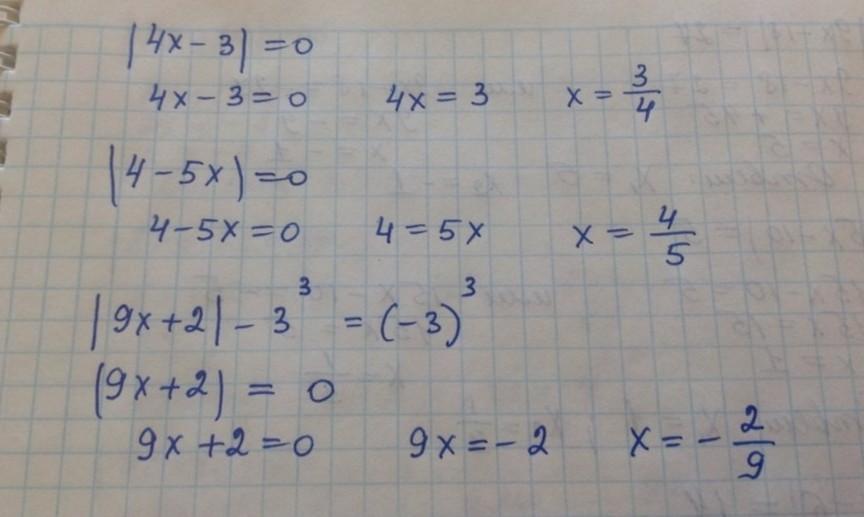 |4x-3| = 0
4x-3=0 4x=3 x=3/4
|4-5x|=0
4-5x=0 4=5x x=4/5
|9x+2|-3³ = (-3)³
|9x+2| = 0
9x+2=0 9x=-2 x=-2/9